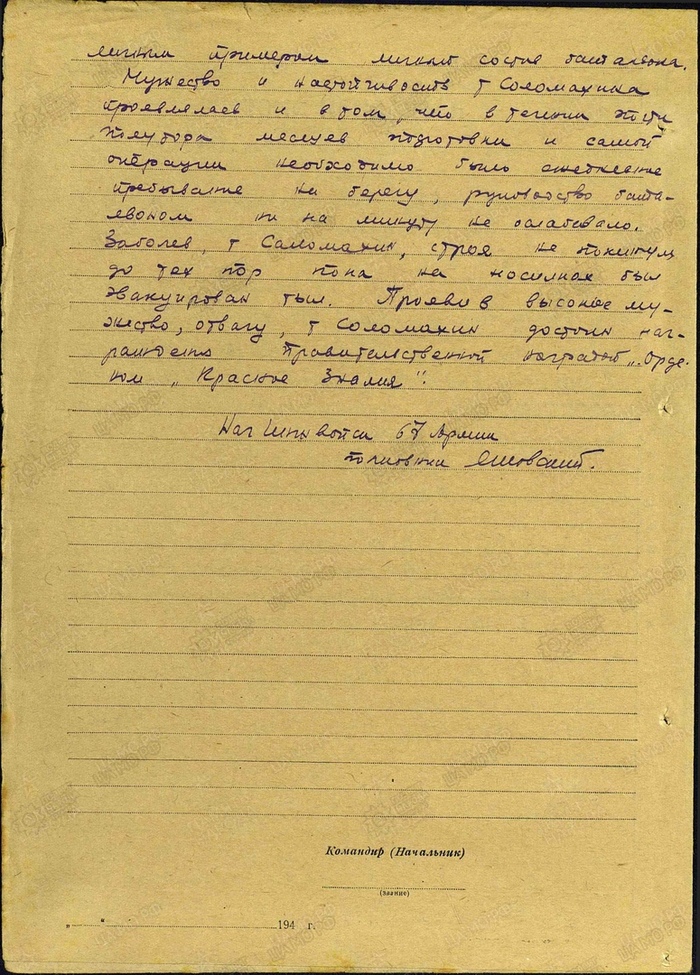 личным примером личный состав батальона.
Мужество и настойчивость т Соломахина
проявлялась и в том, что в течении почти
полутора месяцев подготовки и самой
операции необходимо было ежедневное
пребывание на берегу, руководство бата-
льоном ни на минуту не ослабевало.
Заболев, т Саломахин, строя не покинул
до тех пор пока на носилках был
эвакуирован тыл. Проявив высокое му-
жество, отвагу, т Соломахин достоин наг-
раждения Правительственной наградой „Орде-
ном „Красное Знамя".
Нач Инж Войск 67 Армии
полковник
Командир (Начальник)
(звание)
„ " 194 г.